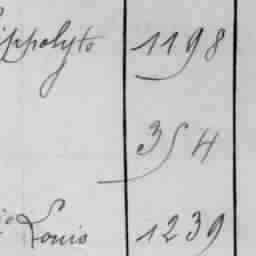 ippolyte 1198
354
Louis 1239